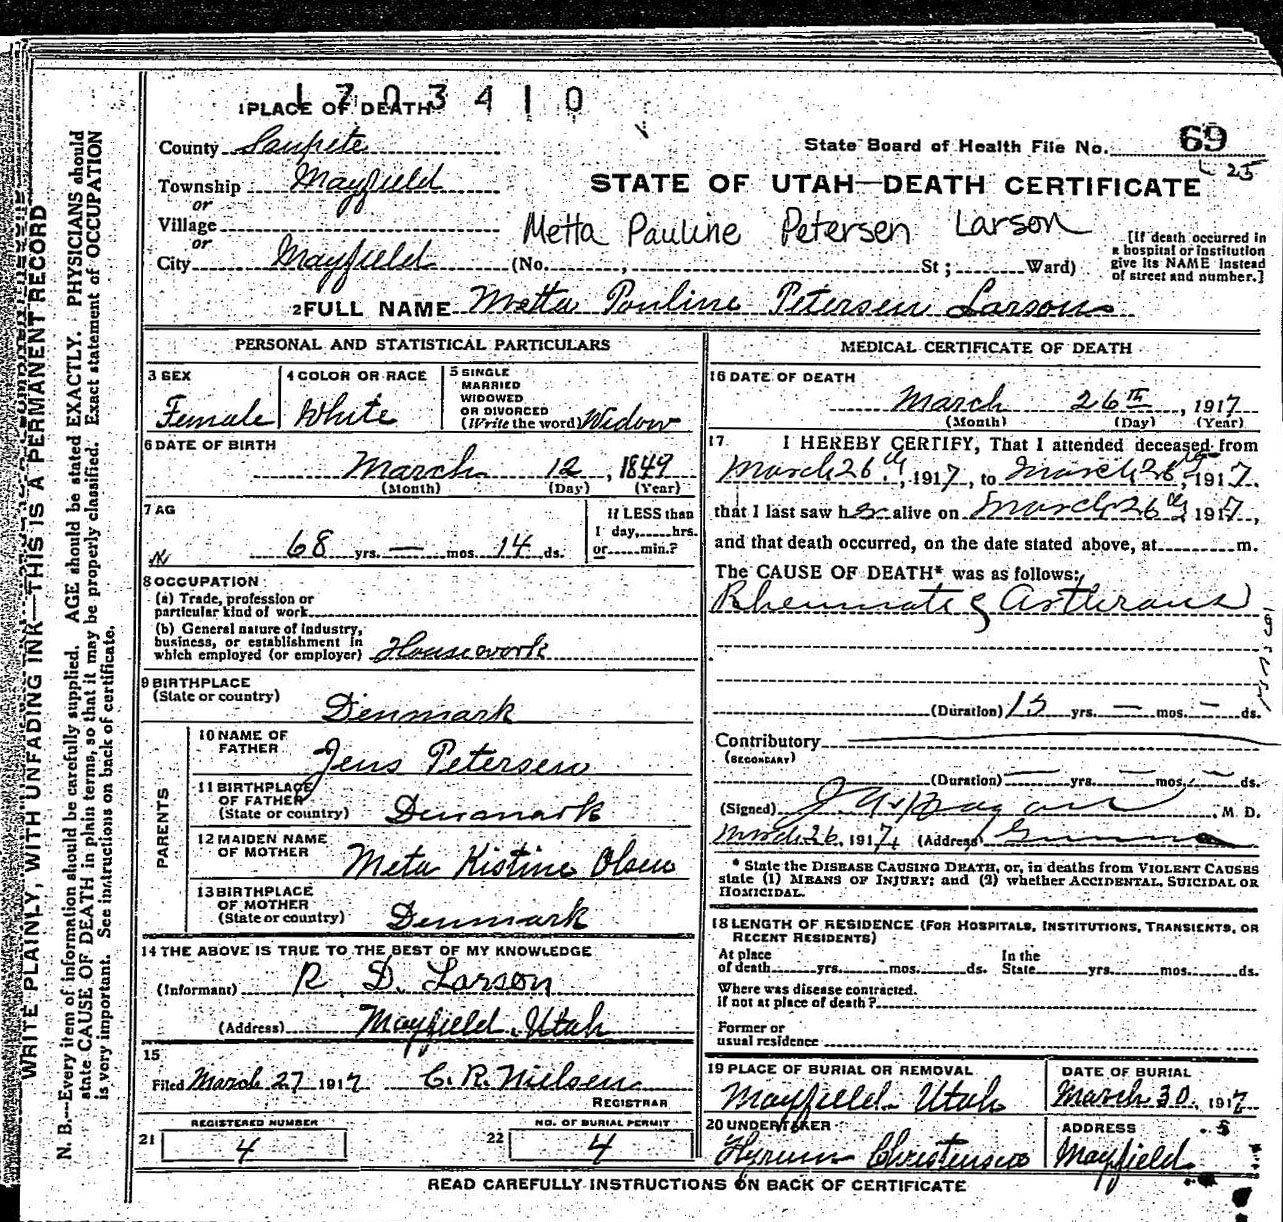 1703410
1 PLACE OF DEATH
County Sanpete
State Board of Health File No. 69
25
Township Mayfield
or
STATE OF UTAH—DEATH CERTIFICATE
Village
or
Metta Pauline Petersen Larson
City Mayfield (No. , St; Ward)
[If death occurred in a hospital or institution give its NAME instead of street and number.]
2 FULL NAME Metta Pauline Petersen Larson
PERSONAL AND STATISTICAL PARTICULARS
3 SEX
Female
4 COLOR OR RACE
White
5 SINGLE
MARRIED
WIDOWED
OR DIVORCED
(Write the word) Widow
6 DATE OF BIRTH
March 12, 1849
(Month) (Day) (Year)
7 AG
68 yrs. — mos. 14 ds.
If LESS than
1 day, hrs.
or min.?
8 OCCUPATION
(a) Trade, profession or
particular kind of work
(b) General nature of industry,
business, or establishment in
which employed (or employer) Housework
9 BIRTHPLACE
(State or country)
Denmark
PARENTS
10 NAME OF
FATHER
Jens Petersen
11 BIRTHPLACE
OF FATHER
(State or country) Denmark
12 MAIDEN NAME
OF MOTHER
Meta Kistine Olsen
13 BIRTHPLACE
OF MOTHER
(State or country) Denmark
14 THE ABOVE IS TRUE TO THE BEST OF MY KNOWLEDGE
(Informant) R. D. Larson
(Address) Mayfield, Utah
15
Filed March 27 1917 C. R. Nielsen
REGISTRAR
REGISTERED NUMBER
21 4
NO. OF BURIAL PERMIT
22 4
MEDICAL CERTIFICATE OF DEATH
16 DATE OF DEATH
March 26th, 1917
(Month) (Day) (Year)
17 I HEREBY CERTIFY, That I attended deceased from
March 26th, 1917, to March 26th, 1917.
that I last saw her alive on March 26th 1917,
and that death occurred, on the date stated above, at m.
The CAUSE OF DEATH* was as follows:
(Duration) 15 yrs. — mos. — ds.
Contributory
(SECONDARY)
(Duration) — yrs. — mos. — ds.
(Signed) , M. D.
March 26, 1917, (Address)
* State the DISEASE CAUSING DEATH, or, in deaths from VIOLENT CAUSES
state (1) MEANS OF INJURY; and (2) whether ACCIDENTAL, SUICIDAL OR
HOMICIDAL.
18 LENGTH OF RESIDENCE (FOR HOSPITALS, INSTITUTIONS, TRANSIENTS, OR
RECENT RESIDENTS)
At place
of death yrs. mos. ds.
In the
State yrs. mos. ds.
Where was disease contracted.
if not at place of death?
Former or
usual residence
19 PLACE OF BURIAL OR REMOVAL
Mayfield Utah
DATE OF BURIAL
March 30, 1917
20 UNDERTAKER
Hyrum Christensen
ADDRESS
Mayfield
READ CAREFULLY INSTRUCTIONS ON BACK OF CERTIFICATE
WRITE PLAINLY, WITH UNFADING INK—THIS IS A PERMANENT RECORD
N. B.—Every item of information should be carefully supplied. AGE should be stated EXACTLY. PHYSICIANS should
state CAUSE OF DEATH in plain terms, so that it may be properly classified. Exact statement of OCCUPATION
is very important. See instructions on back of certificate.